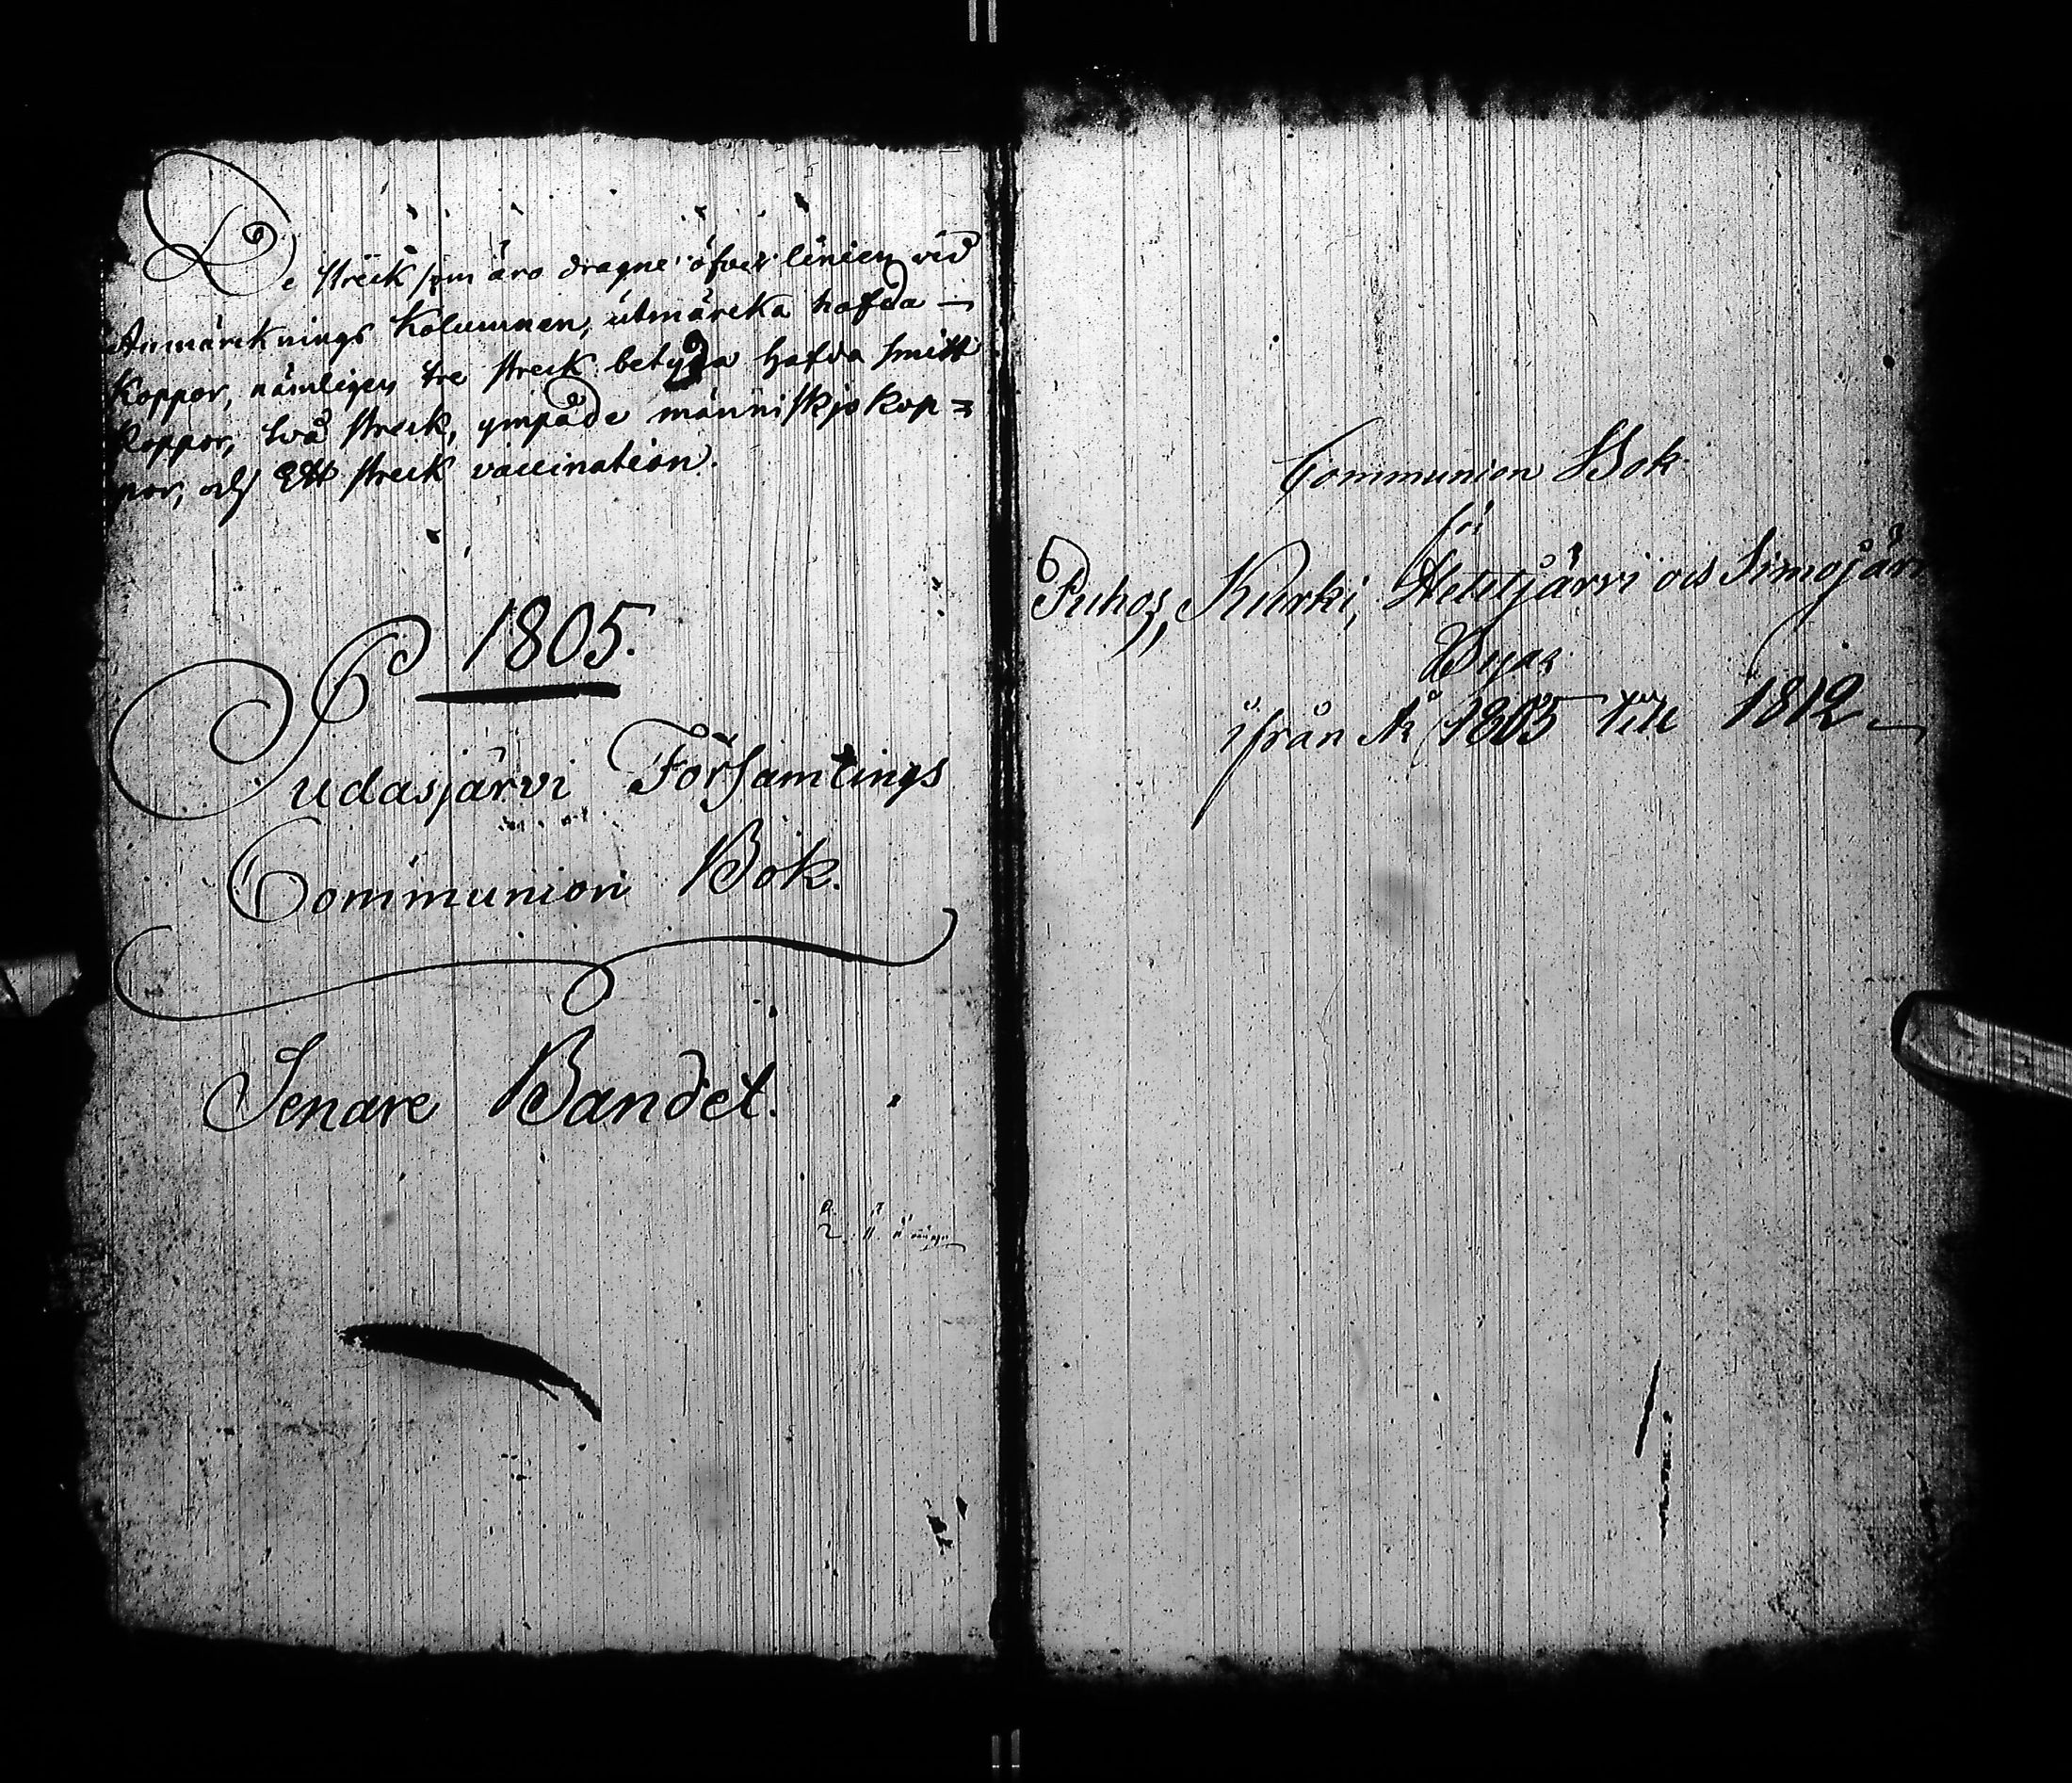 De streck som äro dragne öfver linien vid
Anmärcknings Kolumnen, utmärcka hafda —
Koppor, nämligen tre streck betyda hafda smitt
koppor, två streck, ympade människjo kop=
por, och Ett streck vaccination.
1805.
Pudasjärvi Församlings
Communion Bok.
Senare Bandet.
Communion Bok
för
Puhos, Kurki, Hetejärvi och Simojärvi
Byar
ifrån År 1805 till 1812 —